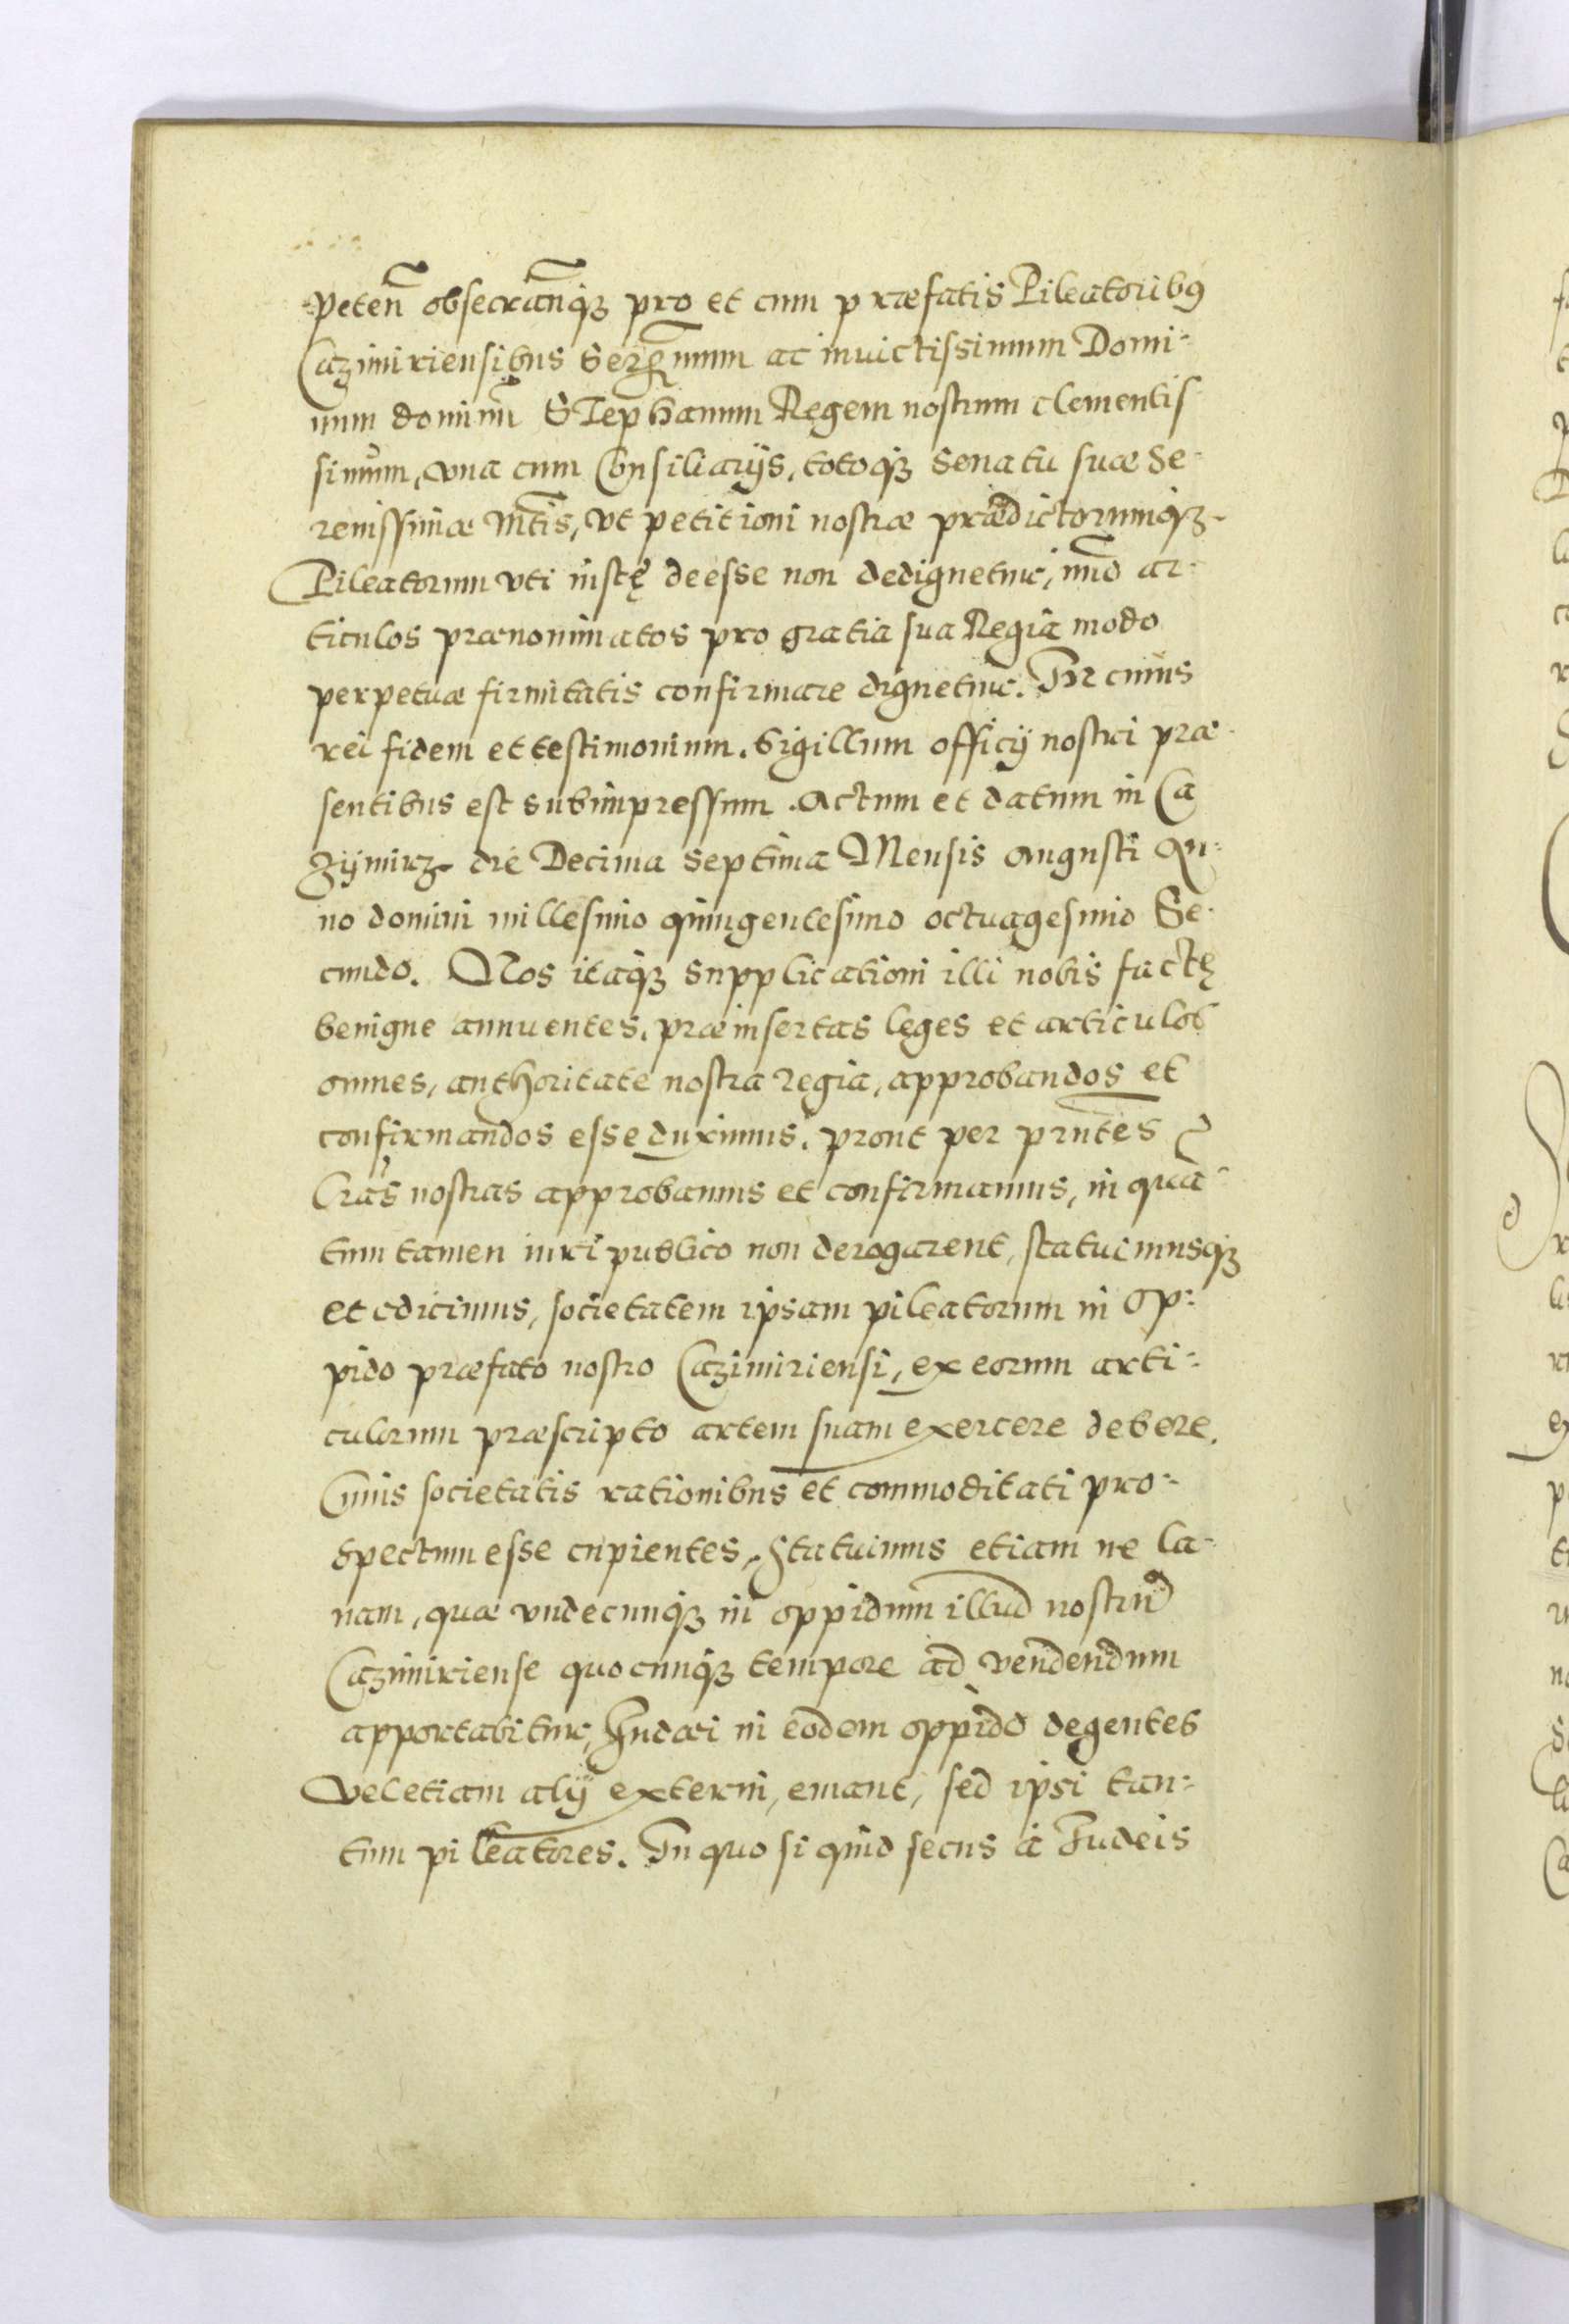 peteñ obsecrañqꝫ pro et cum præfatis Pileatoribꝰ
Cazimiriensibus Sereñ̃mum ac inuictissimum Domi-
num dominũ STephanum Regem nostrum clementis
simum, vna cum Consiliarijs, totoqꝫ Senatu suæ Se-
renissimæ Mtis, vt petitioni nostræ prædictorumqꝫ
Pileatorum vti iustę deesse non dedignetur, imo ar-
ticulos prænominatos pro gratia sua Regia modo
perpetuæ firmitatis confirmare dignetur. In cuius
rei fidem et testimonium. Sigillum officij nostri præ-
sentibus est subimpressum. Actum et datum in Ca
zijmirz die Decima Septima Mensis Augusti An-
no domini millesimo quingentesimo octuagesimo Se-
cundo. Nos itaqꝫ supplicationi illi nobis factę
benigne annuentes, præinsertas leges et articulos
omnes, authoritate nostra regia, approbandos et
confirmandos esse duximus, prout per pn̄tes
lr̄as nostras approbamus et confirmamus, in quã-
tum tamen iuri publico non derogarent, statuimusqꝫ
et edicimus, societatem ipsam pileatorum in Op-
pido præfato nostro Cazimiriensi, ex eorum arti-
culorum præscripto artem suam exercere debere.
Cuius societatis rationibus et commoditati pro-
spectum esse cupientes, Statuimus etiam ne la-
nam, quæ vndecunqꝫ in oppidum illud nostrũ
Cazimiriense quocunqꝫ tempore ad vendendum
apportabitur, Iudæi in eodem oppido degentes
Vel etiam alij externi, emant, sed ipsi tan-
tum pileatores. In quo si quid secus à Iudeis